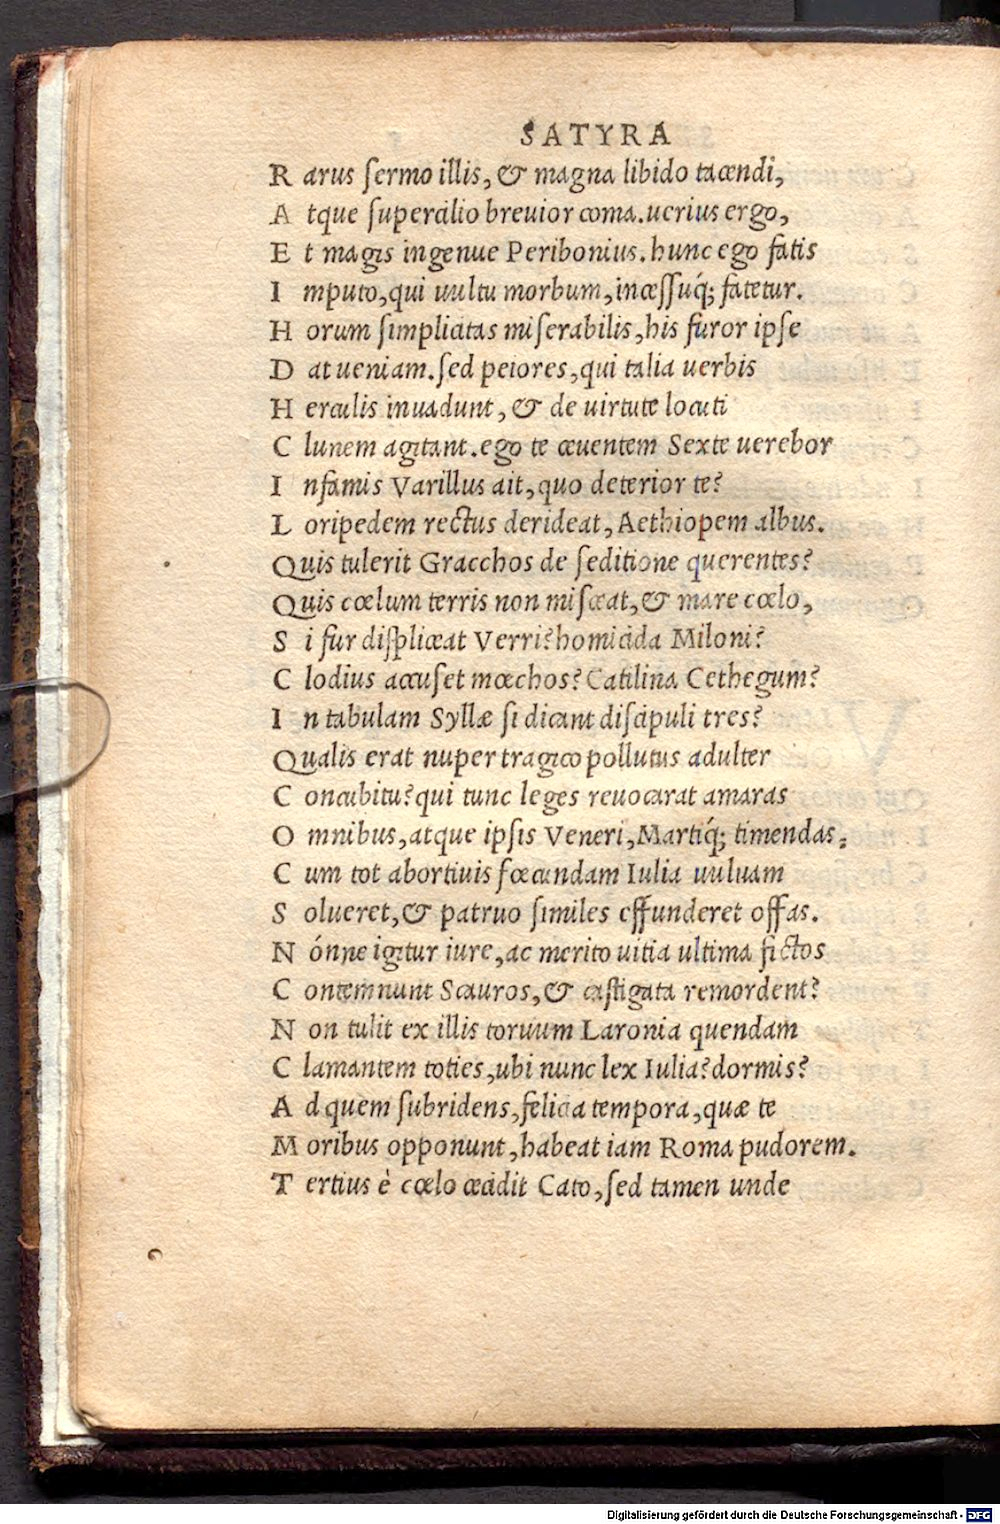 SATYRA
R arus sermo illis, & magna libido tacendi,
A tque supercilio breuior coma. uerius ergo,
E t magis ingenue Peribonius. hunc ego fatis
I mputo, qui uultu morbum, incessuq́; fatetur.
H orum simplicitas miserabilis, his furor ipse
D at ueniam. sed peiores, qui talia uerbis
H erculis inuadunt, & de uirtute locuti
C lunem agitant. ego te ceuentem Sexte uerebor
I nfamis Varillus ait, quo deterior te?
L oripedem rectus derideat, Aethiopem albus.
Quis tulerit Gracchos de seditione querentes?
Quis cœlum terris non misceat, & mare cœlo,
S i fur displiceat Verri? homicida Miloni?
C lodius accuset mœchos? Catilina Cethegum?
I n tabulam Syllæ si dicant discipuli tres?
Qualis erat nuper tragico pollutus adulter
C oncubitu? qui tunc leges reuocarat amaras
O mnibus, atque ipsis Veneri, Martiq́; timendas;
C um tot abortiuis fœcundam Iulia uuluam
S olueret, & patruo similes effunderet offas.
N ónne igitur iure, ac merito uitia ultima fictos
C ontemnunt Scauros, & castigata remordent?
N on tulit ex illis toruum Laronia quendam
C lamantem toties, ubi nunc lex Iulia? dormis?
A d quem subridens, felicia tempora, quæ te
M oribus opponunt, habeat iam Roma pudorem.
T ertius è cœlo cecidit Cato, sed tamen unde
Digitalisierung gefördert durch die Deutsche Forschungsgemeinschaft - DFG